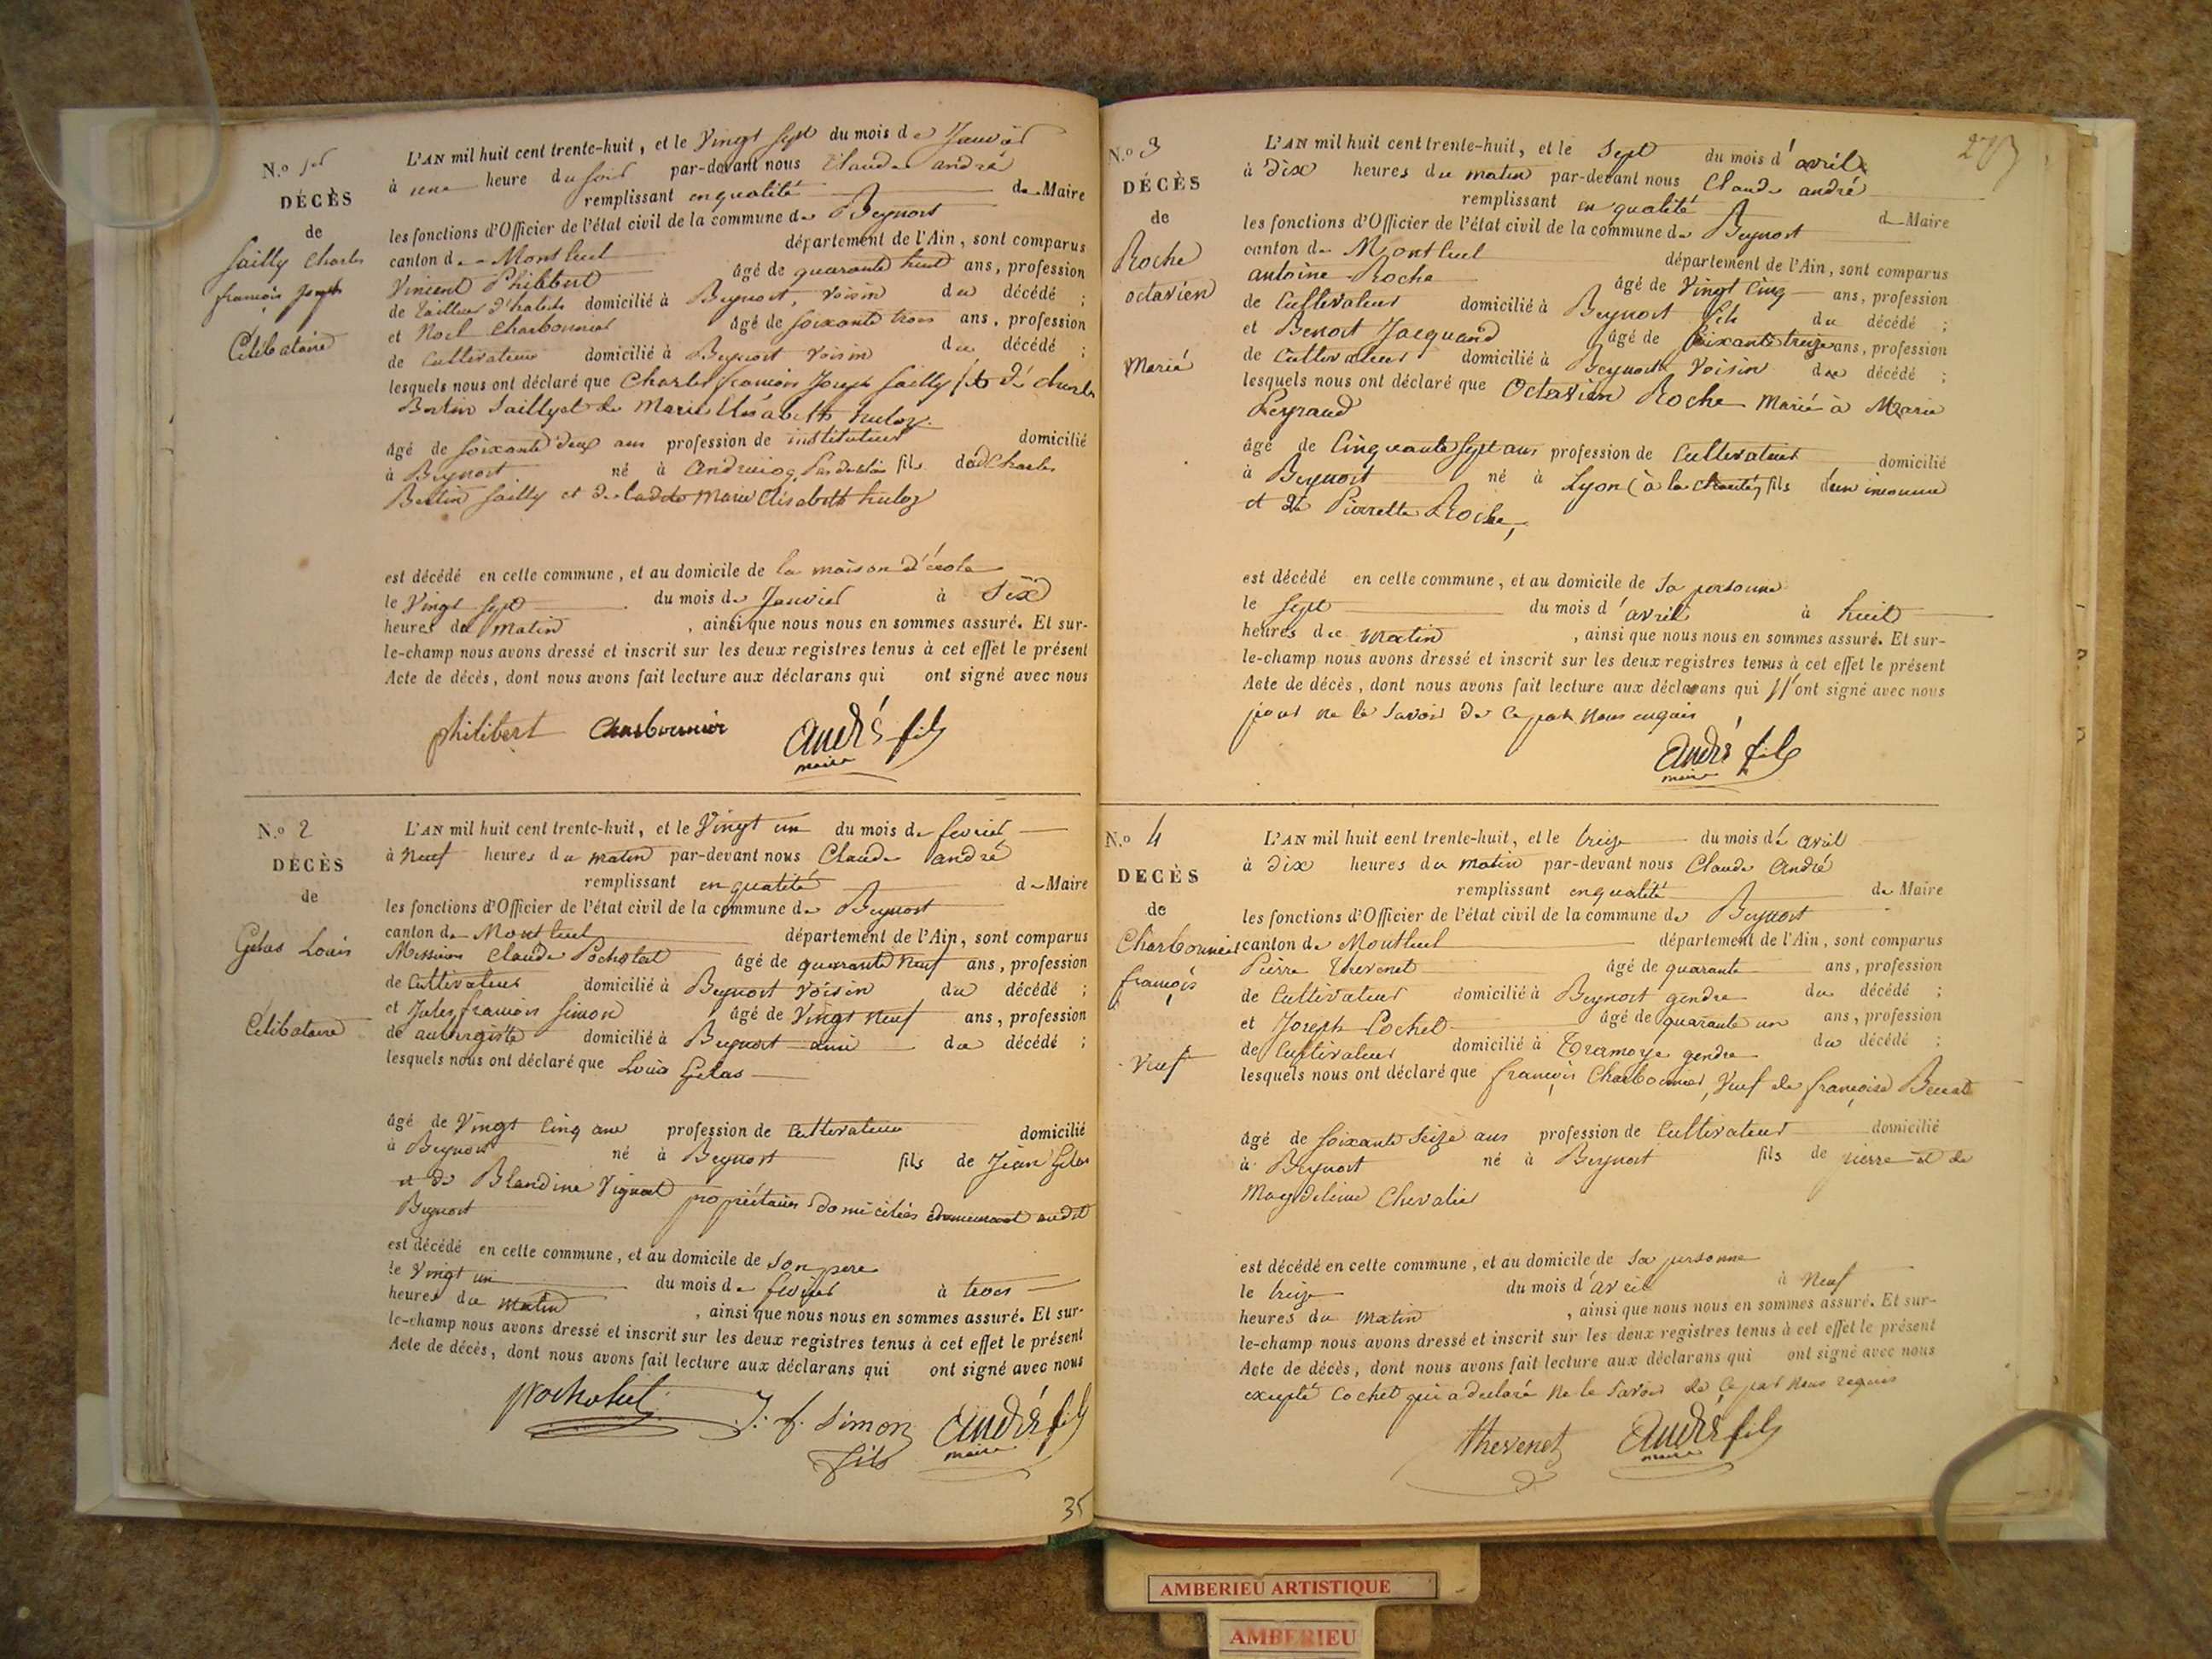 N.o 1er
DÉCÈS
de
Sailly Charles
françois Joseph
Célibataire
L'AN mil huit cent trente-huit, et le Vingt Sept du mois de Janvier
à une heure du soir par-devant nous Claude andré
remplissant en qualité de Maire
les fonctions d'Officier de l'état civil de la commune de Beynost
canton de Montluel département de l'Ain, sont comparus
Vincent Philibert âgé de quarante huit ans, profession
de tailleur d'habits domicilié à Beynost, voisin du décédé ;
et Noel Charbonnier âgé de soixante trois ans, profession
de Cultivateur domicilié à Beynost voisin du décédé ;
lesquels nous ont déclaré que Charles françois Joseph Sailly fils de charles
Bertin Sailly et de Marie Elisabeth huloz
âgé de soixante deux ans profession de instituteur domicilié
à Beynost né à fils de Charles
Bertin Sailly et de Marie Elisabeth huloz
est décédé en cette commune, et au domicile de la maison d'école
le Vingt Sept du mois de Janvier à Six
heures du matin, ainsi que nous nous en sommes assuré. Et sur-
le-champ nous avons dressé et inscrit sur les deux registres tenus à cet effet le présent
Acte de décès, dont nous avons fait lecture aux déclarans qui ont signé avec nous
philibert Charbonnier André fils
maire
N.o 2
DÉCÈS
de
Gelas Louis
Célibataire
L'AN mil huit cent trente-huit, et le Vingt un du mois de fevrier
à Neuf heures du matin par-devant nous Claude andré
remplissant en qualité de Maire
les fonctions d'Officier de l'état civil de la commune de Beynost
canton de Montluel département de l'Ain, sont comparus
Messieurs Claude Pocholat âgé de quarante neuf ans, profession
de Cultivateur domicilié à Beynost voisin du décédé ;
et Jules françois Simon âgé de Vingt neuf ans, profession
de aubergiste domicilié à Beynost ami du décédé ;
lesquels nous ont déclaré que Louis Gelas
âgé de Vingt Cinq ans profession de Cultivateur domicilié
à Beynost né à Beynost fils de Jean Gelas
et de Blandine Vignat propriétaires domiciliés audit
Beynost
est décédé en cette commune, et au domicile de son père
le Vingt un du mois de fevrier à trois
heures du matin, ainsi que nous nous en sommes assuré. Et sur-
le-champ nous avons dressé et inscrit sur les deux registres tenus à cet effet le présent
Acte de décès, dont nous avons fait lecture aux déclarans qui ont signé avec nous
J. f. Simon André fils
fils maire
35
N.o 3
DÉCÈS
de
Roche
octavien
Marié
L'AN mil huit cent trente-huit, et le Sept du mois d'avril
à Dix heures du matin par-devant nous Claude andré
remplissant en qualité de Maire
les fonctions d'Officier de l'état civil de la commune de Beynost
canton de Montluel département de l'Ain, sont comparus
antoine Roche âgé de Vingt Cinq ans, profession
de Cultivateur domicilié à Beynost fils du décédé ;
et Benoit Jacquand âgé de soixante treize ans, profession
de Cultivateur domicilié à Beynost Voisin du décédé ;
lesquels nous ont déclaré que Octavien Roche Marié à Marie
Peyraud
âgé de Cinquante Sept ans profession de Cultivateur domicilié
à Beynost né à Lyon (à la charité) fils d'un inconnu
et de Pierrette Roche,
est décédé en cette commune, et au domicile de Sa personne
le Sept du mois d'avril à huit
heures du matin, ainsi que nous nous en sommes assuré. Et sur-
le-champ nous avons dressé et inscrit sur les deux registres tenus à cet effet le présent
Acte de décès, dont nous avons fait lecture aux déclarans qui n'ont signé avec nous
pour ne le savoir de ce par nous enquis
André fils
maire
N.o 4
DÉCÈS
de
Charbonnier
françois
Veuf
L'AN mil huit cent trente-huit, et le treize du mois de avril
à dix heures du matin par-devant nous Claude André
remplissant en qualité de Maire
les fonctions d'Officier de l'état civil de la commune de Beynost
canton de Montluel département de l'Ain, sont comparus
Pierre thevenet âgé de quarante ans, profession
de Cultivateur domicilié à Beynost gendre du décédé ;
et Joseph Cochet âgé de quarante un ans, profession
de Cultivateur domicilié à Tramoye gendre du décédé ;
lesquels nous ont déclaré que françois Charbonnier, Veuf de françoise
âgé de soixante Seize ans profession de Cultivateur domicilié
à Beynost né à Beynost fils de pierre et de
Magdeleine Chevalier
est décédé en cette commune, et au domicile de Sa personne
le treize du mois d'avril à Neuf
heures du matin, ainsi que nous nous en sommes assuré. Et sur-
le-champ nous avons dressé et inscrit sur les deux registres tenus à cet effet le présent
Acte de décès, dont nous avons fait lecture aux déclarans qui ont signé avec nous
excepté Cochet qui a declaré ne le savoir de ce par nous requis
thevenet André fils
maire
AMBERIEU ARTISTIQUE
AMBERIEU